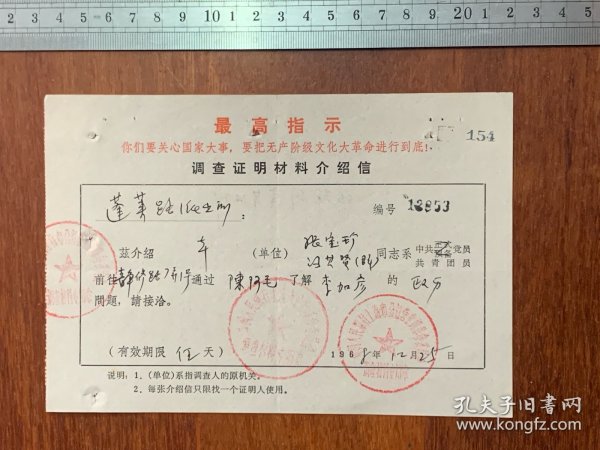 2 3 4 5 6 7 8 9 10 1 2 3 4 5 6 7 8 9 20 1 2 3
最高指示
154
你们要关心国家大事,要把无产阶级文化大革命进行到底!
调查证明材料介绍信
蓬莱路派出所:
编号 13853
兹介绍 本 (单位) 同志系 中共 党员
共青团员
前往静修路 通过 陈阿毛 了解 李加彦 的 政历
问题,请接洽。
(有效期限 伍 天) 1968年12月25日
说明:1.(单位)系指调查人的原机关。
2.每张介绍信只限找一个证明人使用。
孔夫子旧书网
www.kongfz.com